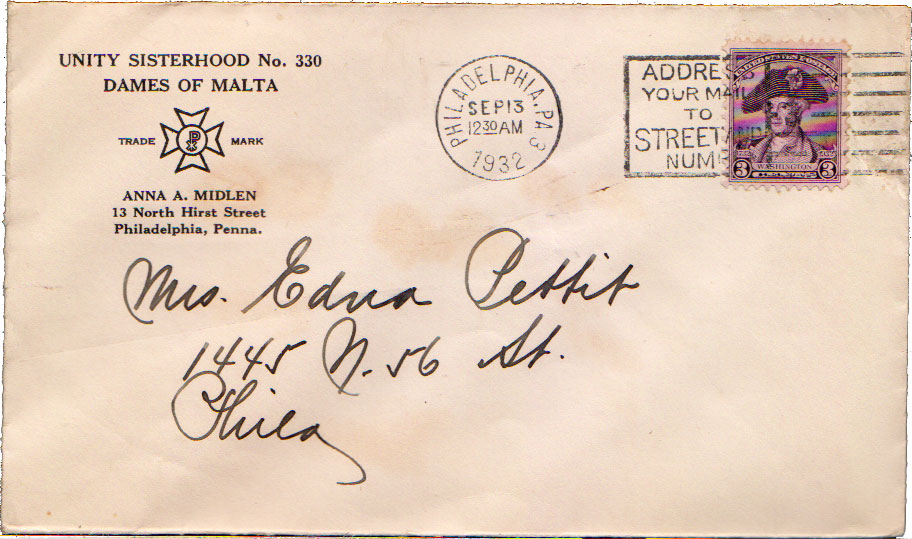 UNITY SISTERHOOD No. 330
DAMES OF MALTA
TRADE MARK
ANNA A. MIDLEN
13 North Hirst Street
Philadelphia, Penna.
PHILADELPHIA, PA 3
SEP 13
12 30 AM
1932
ADDRESS
YOUR MAIL
TO
STREET AND
NUM
UNITED STATES POSTAGE
WASHINGTON
3 3
Mrs. Edna Pettit
1445 N. 56 St.
Phila